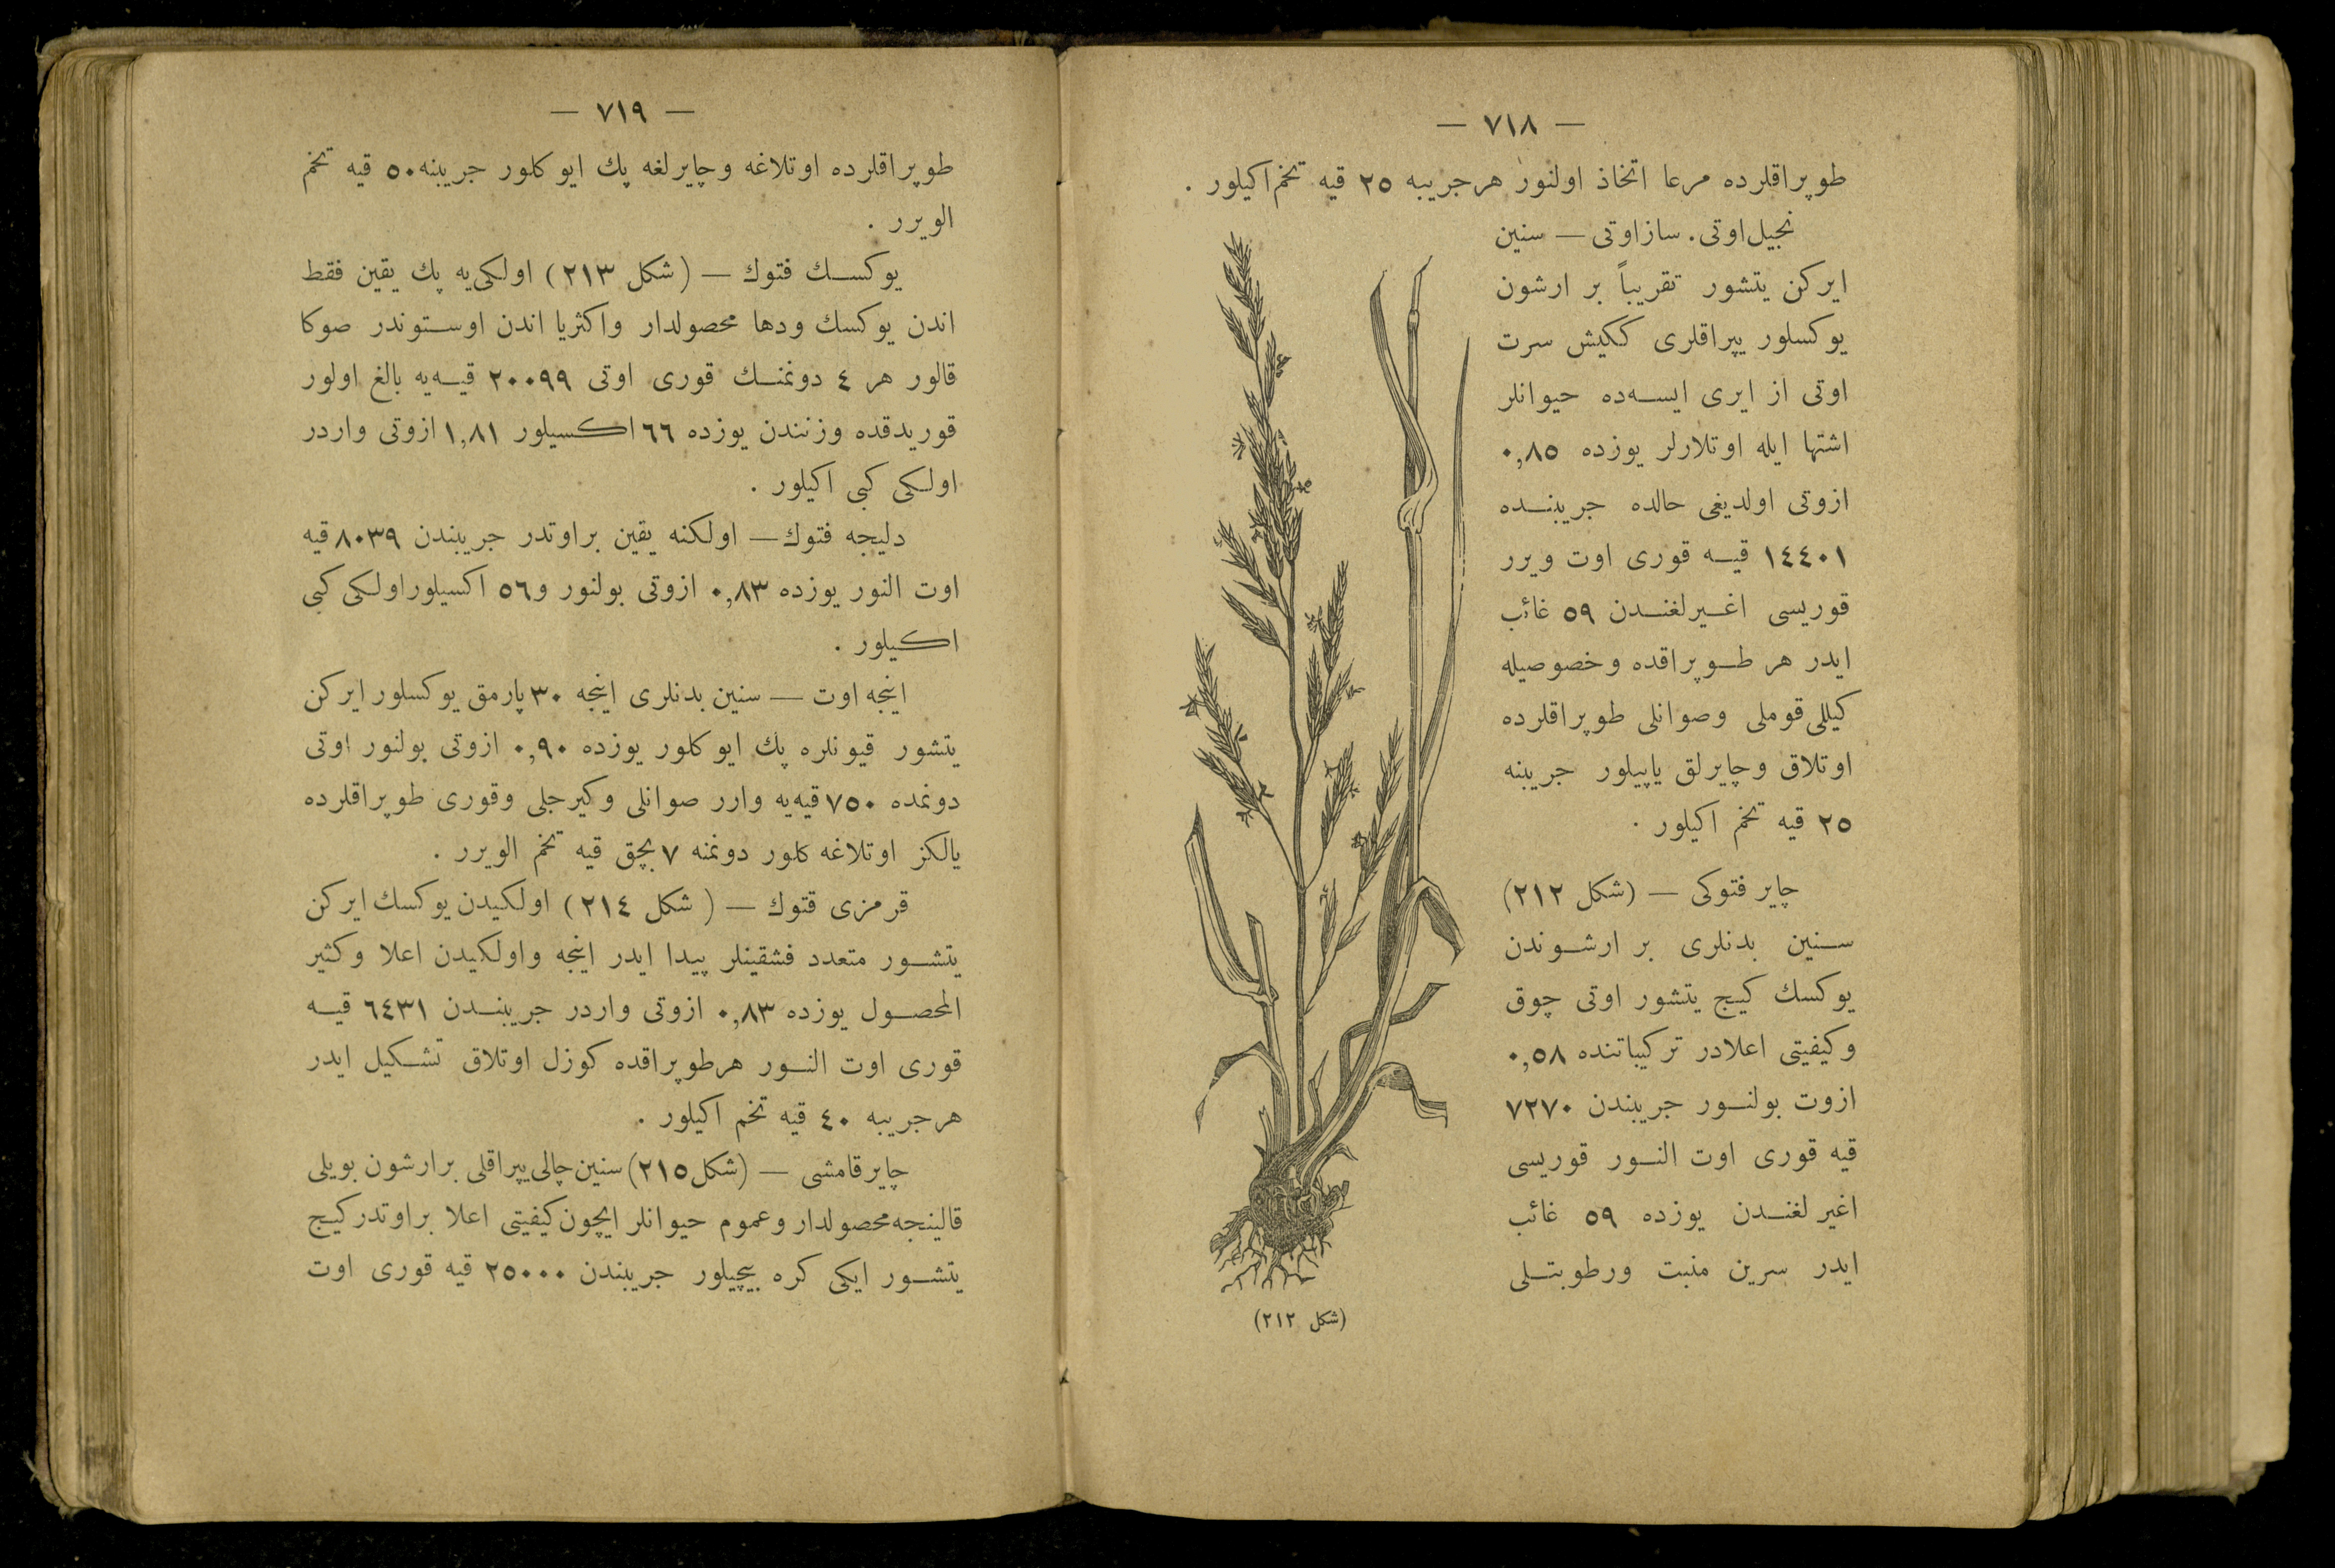 — ٧١٨ —
طوپراقلرده مرعا اتخاذ اولنور هرجريبه ٢٥ قيه تخم اكيلور .
نجيل اوتى . ساز اوتى — سنين
ايركن يتشور تقريباً بر ارشون
يوكسلور يپراقلرى ككيش سرت
اوتى از ايرى ايسه‌ده حيوانلر
اشتها ايله اوتلارلر يوزده ٠,٨٥
ازوتى اولديغى حالده جريبنده
١٤٤٠١ قيه قورى اوت ويرر
قوريسى اغيرلغندن ٥٩ غائب
ايدر هر طوپراقده وخصوصيله
كيللى قوملى وصوانلى طوپراقلرده
اوتلاق وچايرلق ياپيلور جريبنه
٢٥ قيه تخم اكيلور .
چاير فتوكى — (شكل ٢١٢)
سنين بدنلرى بر ارشوندن
يوكسك كيج يتشور اوتى چوق
وكيفيتى اعلادر تركيباتنده ٠,٥٨
ازوت بولنور جريبندن ٧٢٧٠
قيه قورى اوت النور قوريسى
اغيرلغندن يوزده ٥٩ غائب
ايدر سرين منبت ورطوبتلى
(شكل ٢١٢)
— ٧١٩ —
طوپراقلرده اوتلاغه وچايرلغه پك ايو كلور جريبنه ٥٠ قيه تخم
الويرر .
يوكسك فتوك — (شكل ٢١٣) اولكى‌يه پك يقين فقط
اندن يوكسك ودها محصولدار واكثريا اندن اوستوندر صوكا
قالور هر ٤ دونمنك قورى اوتى ٢٠٠٩٩ قيه‌يه بالغ اولور
قوريدقده وزنندن يوزده ٦٦ اكسيلور ١,٨١ ازوتى واردر
اولكى كبى اكيلور .
دليجه فتوك — اولكنه يقين براوتدر جريبندن ٨٠٣٩ قيه
اوت النور يوزده ٠,٨٣ ازوتى بولنور و٥٦ اكسيلور اولكى كبى
اكيلور .
اينجه اوت — سنين بدنلرى اينجه ٣٠ پارمق يوكسلور ايركن
يتشور قيونلره پك ايو كلور يوزده ٠,٩٠ ازوتى بولنور اوتى
دونمده ٧٥٠ قيه‌يه وارر صوانلى وكيرجلى وقورى طوپراقلرده
يالكز اوتلاغه كلور دونمنه ٧ بچق قيه تخم الويرر .
قرمزى قتوك — (شكل ٢١٤) اولكيدن يوكسك ايركن
يتشور متعدد فشقينلر پيدا ايدر اينجه واولكيدن اعلا وكثير
المحصول يوزده ٠,٨٣ ازوتى واردر جريبندن ٦٤٣١ قيه
قورى اوت النور هرطوپراقده كوزل اوتلاق تشكيل ايدر
هرجريبه ٤٠ قيه تخم اكيلور .
چايرقامشى — (شكل ٢١٥) سنين چالى يپراقلى برارشون بويلى
قالينجه محصولدار وعموم حيوانلر ايچون كيفيتى اعلا براوتدر كيج
يتشور ايكى كره بيچيلور جريبندن ٢٥٠٠٠ قيه قورى اوت